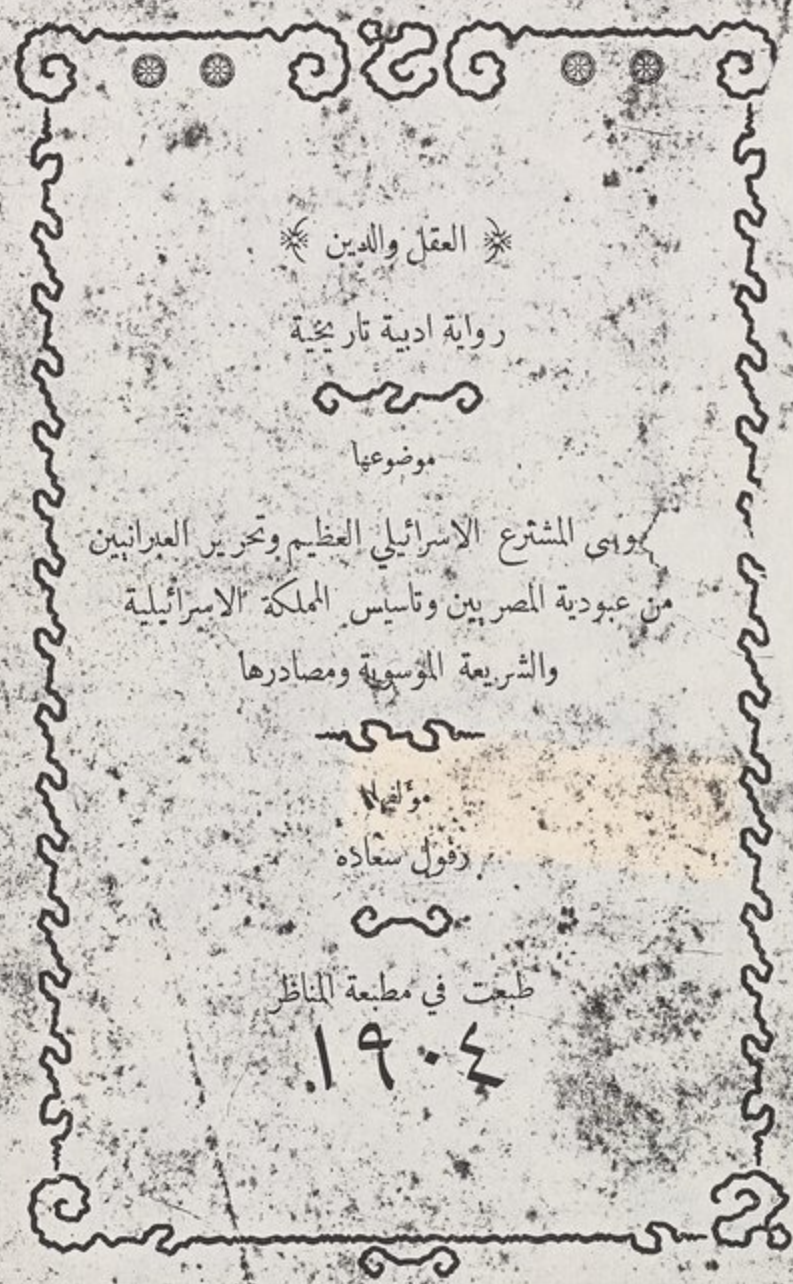 العقل والدين
رواية ادبية تاريخية
موضوعها
المشترع الاسرائيلي العظيم وتحرير العبرانيين
من عبودية المصريين وتاسيس المملكة الاسرائيلية
والشريعة الموسوية ومصادرها
مؤلفها
رفول سعاده
طبعت في مطبعة المناظر
١٩٠٤